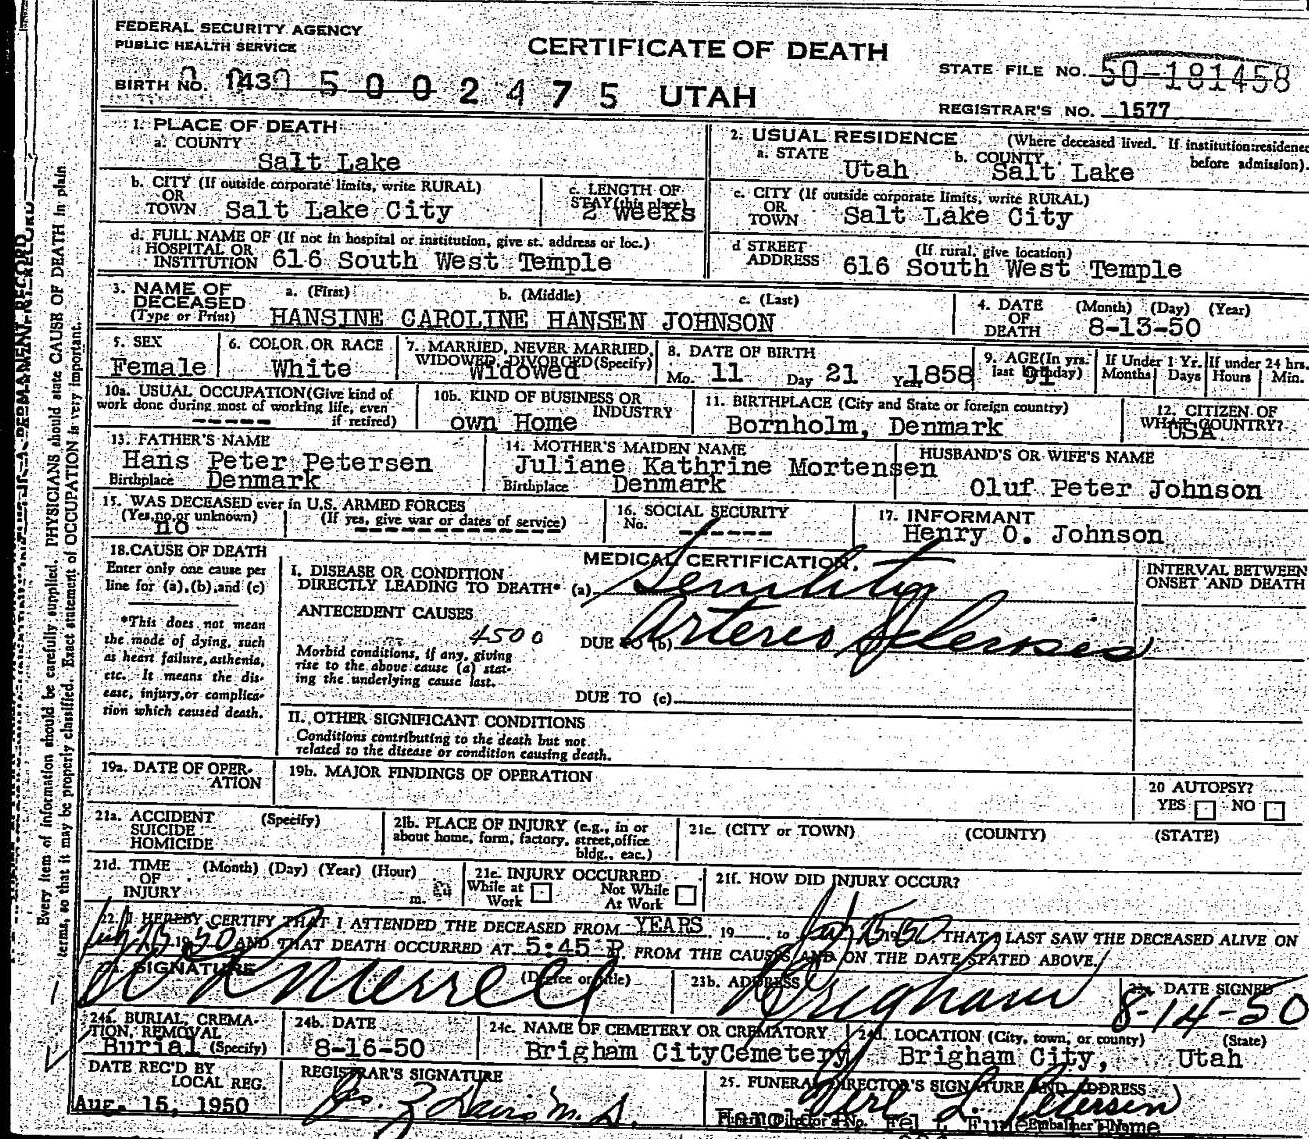 FEDERAL SECURITY AGENCY
PUBLIC HEALTH SERVICE
CERTIFICATE OF DEATH
STATE FILE NO. 50-181458
BIRTH NO. 1430 5 0 0 2 4 7 5 UTAH
REGISTRAR'S NO. 1577
1. PLACE OF DEATH
a. COUNTY
Salt Lake
2. USUAL RESIDENCE (Where deceased lived. If institution: residence before admission).
a. STATE Utah b. COUNTY Salt Lake
b. CITY (If outside corporate limits, write RURAL)
OR
TOWN Salt Lake City
c. LENGTH OF
STAY (this place)
2 weeks
c. CITY (If outside corporate limits, write RURAL)
OR
TOWN Salt Lake City
d. FULL NAME OF (If not in hospital or institution, give st. address or loc.)
HOSPITAL OR
INSTITUTION 616 South West Temple
d STREET (If rural, give location)
ADDRESS 616 South West Temple
3. NAME OF
DECEASED
(Type or Print)
a. (First) b. (Middle) c. (Last)
HANSINE CAROLINE HANSEN JOHNSON
4. DATE (Month) (Day) (Year)
OF
DEATH 8-13-50
5. SEX
Female
6. COLOR OR RACE
White
7. MARRIED, NEVER MARRIED,
WIDOWED, DIVORCED (Specify)
Widowed
8. DATE OF BIRTH
Mo. 11 Day 21 Year 1858
9. AGE (In yrs.
last birthday)
91
If Under 1 Yr. If under 24 hrs.
Months Days Hours Min.
10a. USUAL OCCUPATION (Give kind of
work done during most of working life, even
if retired)
-----
10b. KIND OF BUSINESS OR
INDUSTRY
own Home
11. BIRTHPLACE (City and State or foreign country)
Bornholm, Denmark
12. CITIZEN OF
WHAT COUNTRY?
USA
13. FATHER'S NAME
Hans Peter Petersen
Birthplace Denmark
14. MOTHER'S MAIDEN NAME
Juliane Kathrine Mortensen
Birthplace Denmark
HUSBAND'S OR WIFE'S NAME
Oluf Peter Johnson
15. WAS DECEASED ever in U.S. ARMED FORCES
(Yes, no, or unknown) (If yes, give war or dates of service)
no
16. SOCIAL SECURITY
No. ------
17. INFORMANT
Henry O. Johnson
18. CAUSE OF DEATH
Enter only one cause per
line for (a), (b), and (c)
*This does not mean
the mode of dying, such
as heart failure, asthenia,
etc. It means the dis-
ease, injury, or complica-
tion which caused death.
MEDICAL CERTIFICATION.
INTERVAL BETWEEN
ONSET AND DEATH
I. DISEASE OR CONDITION
DIRECTLY LEADING TO DEATH* (a) Senility
ANTECEDENT CAUSES
4500
DUE TO (b) Arterio Sclerosis
Morbid conditions, if any, giving
rise to the above cause (a) stat-
ing the underlying cause last.
DUE TO (c)
II. OTHER SIGNIFICANT CONDITIONS
Conditions contributing to the death but not
related to the disease or condition causing death.
19a. DATE OF OPER-
ATION
19b. MAJOR FINDINGS OF OPERATION
20 AUTOPSY?
YES NO
21a. ACCIDENT (Specify)
SUICIDE
HOMICIDE
21b. PLACE OF INJURY (e.g., in or
about home, form, factory, street, office
bldg., eac.)
21c. (CITY or TOWN) (COUNTY) (STATE)
21d. TIME (Month) (Day) (Year) (Hour)
OF
INJURY m.
21e. INJURY OCCURRED
While at
Work
Not While
At Work
21f. HOW DID INJURY OCCUR?
22. I HEREBY CERTIFY THAT I ATTENDED THE DECEASED FROM YEARS 19 to July 15 1950 THAT I LAST SAW THE DECEASED ALIVE ON
July 15 1950 AND THAT DEATH OCCURRED AT 5:45 P. FROM THE CAUSES AND ON THE DATE STATED ABOVE.
SIGNATURE (Degree or title)
Merrell
23b. ADDRESS
Brigham
DATE SIGNED
8-14-50
24a. BURIAL, CREMA-
TION, REMOVAL
Burial (Specify)
24b. DATE
8-16-50
24c. NAME OF CEMETERY OR CREMATORY
Brigham City Cemetery
24d. LOCATION (City, town, or county) (State)
Brigham City, Utah
DATE REC'D BY
LOCAL REG.
Aug. 15, 1950
REGISTRAR'S SIGNATURE
Davis M. D.
25. FUNERAL DIRECTOR'S SIGNATURE AND ADDRESS
L. Petersen
Embalmer's Name
Every item of information should be carefully supplied. PHYSICIANS should state CAUSE OF DEATH in plain
terms, so that it may be properly classified. Exact statement of OCCUPATION is very important.